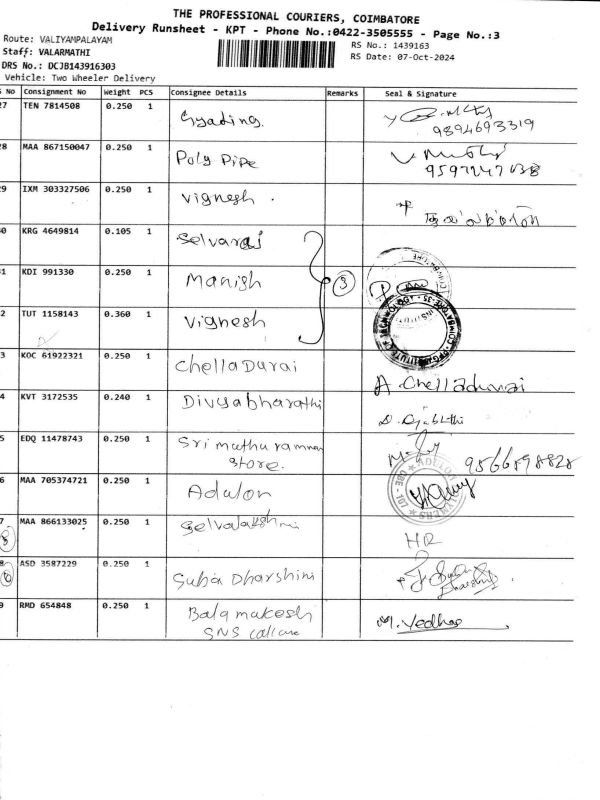 THE PROFESSIONAL COURIERS, COIMBATORE
Delivery Runsheet - KPT - Phone No.:0422-3505555 - Page No.:3
Route: VALIYAMPALAYAM
RS No.: 1439163
Staff: VALARMATHI
RS Date: 07-Oct-2024
DRS No.: DCJB143916303
Vehicle: Two Wheeler Delivery
No Consignment No Weight PCS Consignee Details Remarks Seal & Signature
27 TEN 7814508 0.250 1 Gyading.
9894693319
28 MAA 867150047 0.250 1 Poly Pipe
29 IXM 303327506 0.250 1 Vignesh .
0 KRG 4649814 0.105 1 Selvaraj
1 KDI 991330 0.250 1 Manish 3
2 TUT 1158143 0.360 1 Vignesh
3 KOC 61922321 0.250 1 Chelladurai A. Chelladurai
4 KVT 3172535 0.240 1 Divyabharathi
5 EDQ 11478743 0.250 1 Sri muthu raman
store.
6 MAA 705374721 0.250 1 Adulon
7 MAA 866133025 0.250 1 Selvalakshmi HR
8 ASD 3587229 0.250 1 Suba Dharshini
9 RMD 654848 0.250 1 Balamakesh
SNS